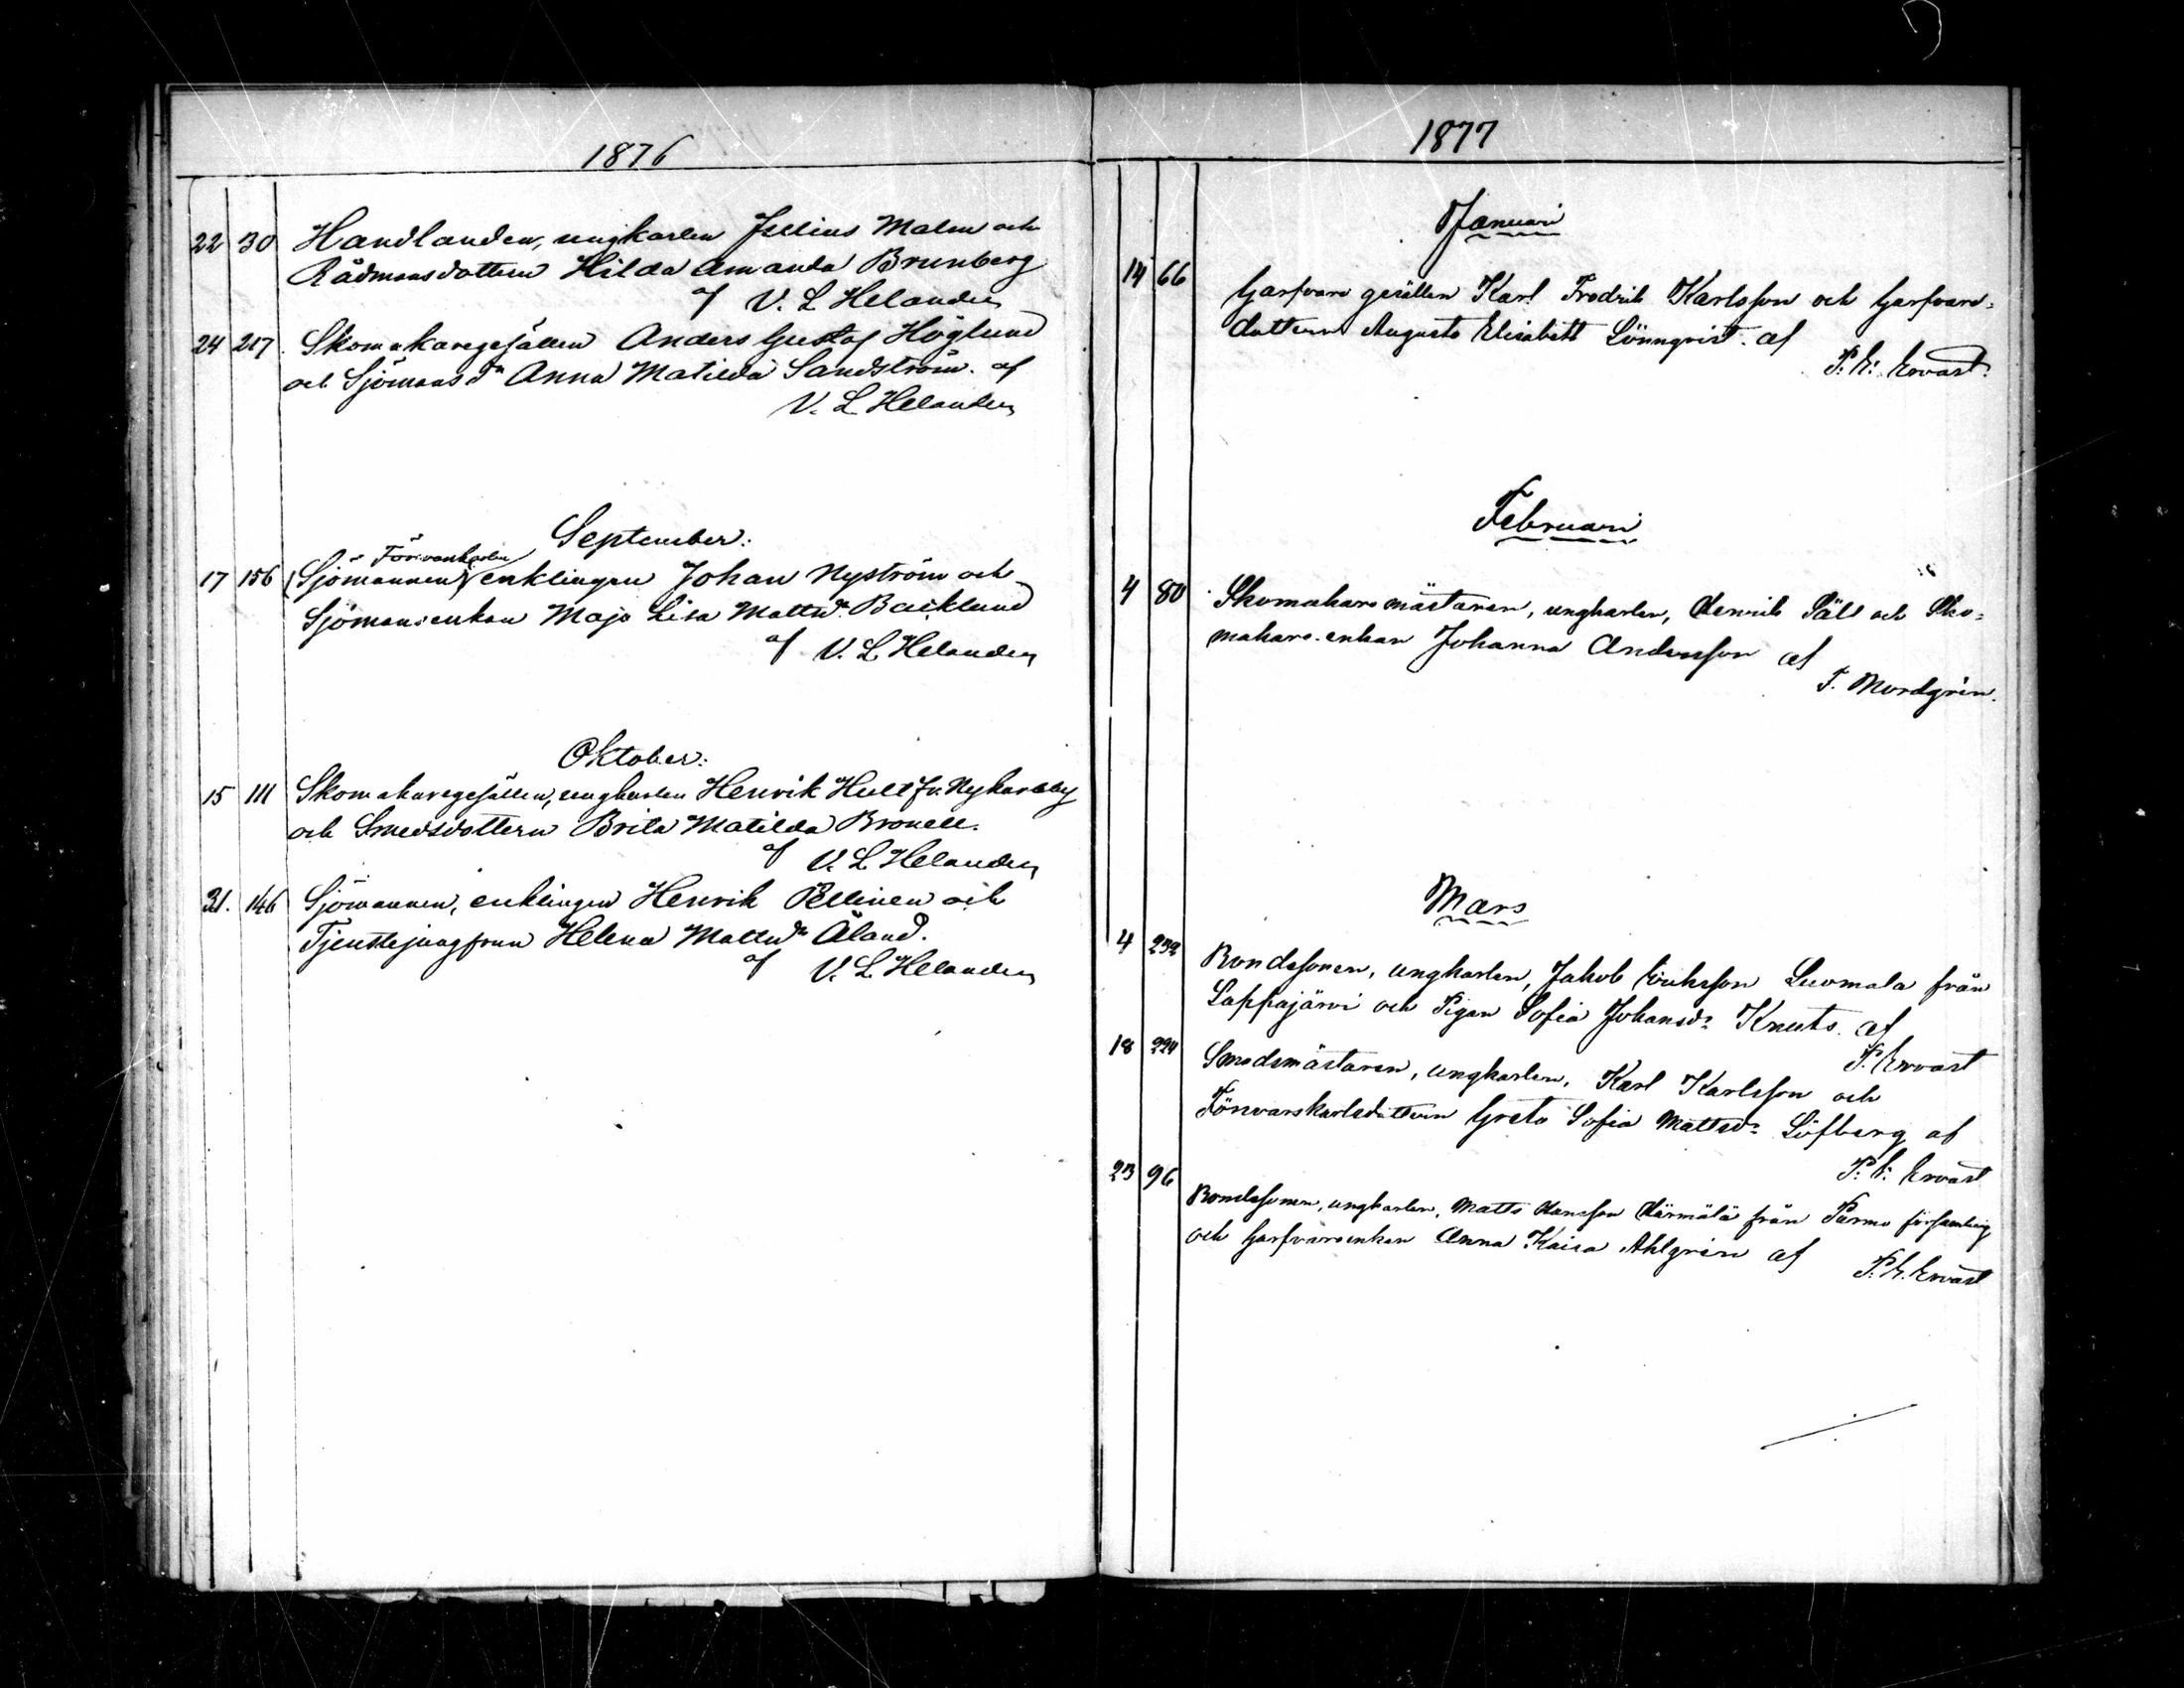 1876
22 30 Handlanden, ungkarlen Julius Malm och
Rådmansdottern Hilda Amanda Brunberg
af V. L Helander
24 217 Skomakaregesällen Anders Gustaf Höglund
och Sjömansdn Anna Matilda Sandström. af
V. L Helander
September:
Förvarskarlen
17 156 (Sjömannen) enklingen Johan Nyström och
Sjömansenkan Maja Lisa Mattsdr Backlund
af V. L Helander
Oktober:
15 111 Skomakaregesällen, ungkarlen Henrik Hult fr. Nykarleby
och Smedsdottern Brita Matilda Bronell.
af V. L Helander
31. 146 Sjömannen, enklingen Henrik Pellinen och
Tjenstejungfrun Helena Mattsdr Åland.
af V. L Helander
1877
Januari
14 66 Garfvare gesällen Karl Fredrik Karlsson och Garfvare-
dottern Augusta Elisabett Lönnqvist. af
P. E: Ervast.
Februari
4 80 Skomakare mästaren, ungkarlen, Henrik Päll och Sko-
makare-enkan Johanna Andersson af
F. Nordgrén.
Mars
4 232 Bondesonen, ungkarlen, Jakob Eriksson Luomala från
Lappajärvi och Pigan Sofia Johansdr Knuts. af
P. Ervast
18 224 Smedsmästaren, ungkarlen, Karl Karlsson och
Förvarskarlsdottern Greta Sofia Mattsdr Löfberg af
P. E: Ervast
23 96 Bondesonen, ungkarlen, Matts Hansson Härmälä från Purmo församling
och Garfvareenkan Anna Kaisa Ahlgrén af
P. E. Ervast